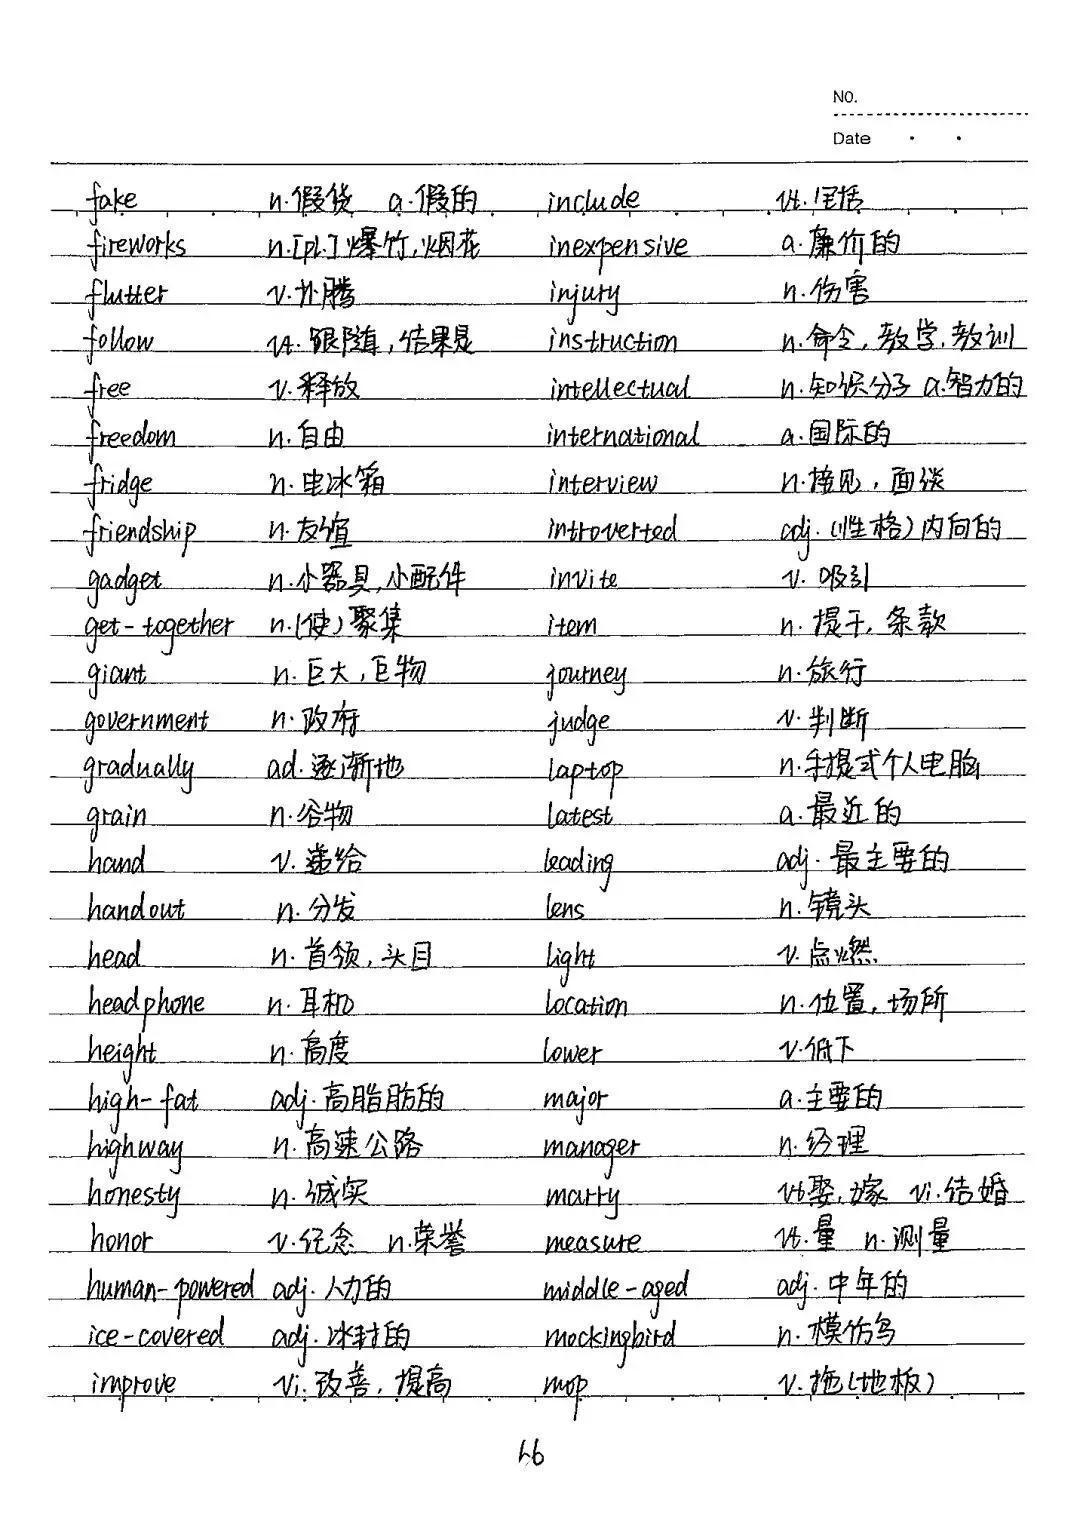 NO.
Date
fake n.假货 a.假的 include vt.包括
fireworks n.[pl.]爆竹,烟花 inexpensive a.廉价的
flutter v.扑腾 injury n.伤害
follow vt.跟随,结果是 instruction n.命令,教学,教训
free v.释放 intellectual n.知识分子 a.智力的
freedom n.自由 international a.国际的
fridge n.电冰箱 interview n.接见,面谈
friendship n.友谊 introverted adj.(性格)内向的
gadget n.小器具,小配件 invite v.吸引
get-together n.(使)聚集 item n.提干,条款
giant n.巨大,巨物 journey n.旅行
government n.政府 judge v.判断
gradually ad.逐渐地 laptop n.手提式个人电脑
grain n.谷物 latest a.最近的
hand v.递给 leading adj.最主要的
handout n.分发 lens n.镜头
head n.首领,头目 light v.点燃
headphone n.耳机 location n.位置,场所
height n.高度 lower v.低下
high-fat adj.高脂肪的 major a.主要的
highway n.高速公路 manager n.经理
honesty n.诚实 marry vt娶,嫁 vi.结婚
honor v.纪念 n.荣誉 measure vt.量 n.测量
human-powered adj.人力的 middle-aged adj.中年的
ice-covered adj.冰封的 mockingbird n.模仿鸟
improve vi.改善,提高 mop v.拖(地板)